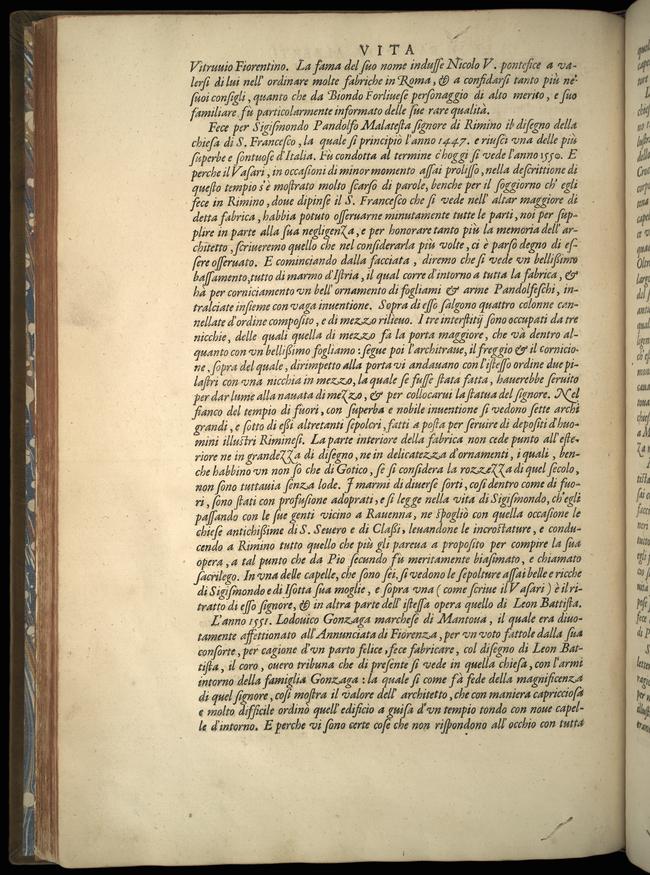 VITA
Vitruuio Fiorentino. La fama del suo nome indusse Nicolo V. pontefice a va-
lersi di lui nell' ordinare molte fabriche in Roma, & a confidarsi tanto più ne'
suoi consigli, quanto che da Biondo Forliuese personaggio di alto merito, e suo
familiare fù particolarmente informato delle sue rare qualità.
Fece per Sigismondo Pandolfo Malatesta signore di Rimino il disegno della
chiesa di S. Francesco, la quale si principiò l'anno 1447. e riuscì vna delle più
superbe e sontuose d'Italia. Fù condotta al termine c'hoggi si vede l'anno 1550. E
perche il Vasari, in occasioni di minor momento assai prolisso, nella descrittione di
questo tempio s'è mostrato molto scarso di parole, benche per il soggiorno ch' egli
fece in Rimino, doue dipinse il S. Francesco che si vede nell' altar maggiore di
detta fabrica, habbia potuto osseruarne minutamente tutte le parti, noi per sup-
plire in parte alla sua negligenza, e per honorare tanto più la memoria dell' ar-
chitetto, scriueremo quello che nel considerarla più volte, ci è parso degno di es-
sere osseruato. E cominciando dalla facciata, diremo che si vede vn bellißimo
bassamento, tutto di marmo d'Istria, il qual corre d'intorno a tutta la fabrica, &
hà per corniciamento vn bell' ornamento di fogliami & arme Pandolfeschi, in-
tralciate insieme con vaga inuentione. Sopra di esso salgono quattro colonne can-
nellate d'ordine composito, e di mezzo rilieuo. I tre interstitij sono occupati da tre
nicchie, delle quali quella di mezzo fà la porta maggiore, che và dentro al-
quanto con vn bellißimo fogliamo: segue poi l'architraue, il freggio & il cornicio-
ne, sopra del quale, dirimpetto alla porta vi andauano con l'istesso ordine due pi-
lastri con vna nicchia in mezzo, la quale se fusse stata fatta, hauerebbe seruito
per dar lume alla nauata di mezzo, & per collocarui la statua del signore. Nel
fianco del tempio di fuori, con superba e nobile inuentione si vedono sette archi
grandi, e sotto di eßi altretanti sepolcri, fatti a posta per seruire di depositi d'huo-
mini illustri Riminesi. La parte interiore della fabrica non cede punto all' este-
riore ne in grandezza di disegno, ne in delicatezza d'ornamenti, i quali, ben-
che habbino vn non so che di Gotico, se si considera la rozzezza di quel secolo,
non sono tuttauia senza lode. I marmi di diuerse sorti, così dentro come di fuo-
ri, sono stati con profusione adoprati, e si legge nella vita di Sigismondo, ch'egli
passando con le sue genti vicino a Rauenna, ne spogliò con quella occasione le
chiese antichißime di S. Seuero e di Claßi, leuandone le incrostature, e condu-
cendo a Rimino tutto quello che più gli pareua a proposito per compire la sua
opera, a tal punto che da Pio secundo fù meritamente biasimato, e chiamato
sacrilego. In vna delle capelle, che sono sei, si vedono le sepolture assai belle e ricche
di Sigismondo e di Isotta sua moglie, e sopra vna (come scriue il Vasari) è il ri-
tratto di esso signore, & in altra parte dell' istessa opera quello di Leon Battista.
L'anno 1551. Lodouico Gonzaga marchese di Mantoua, il quale era diuo-
tamente affettionato all' Annunciata di Fiorenza, per vn voto fattole dalla sua
consorte, per cagione d'vn parto felice, fece fabricare, col disegno di Leon Bat-
tista, il coro, ouero tribuna che di presente si vede in quella chiesa, con l'armi
intorno della famiglia Gonzaga: la quale si come fà fede della magnificenza
di quel signore, così mostra il valore dell' architetto, che con maniera capricciosa
e molto difficile ordinò quell' edificio a guisa d'vn tempio tondo con noue capel-
le d'intorno. E perche vi sono certe cose che non rispondono all' occhio con tutta